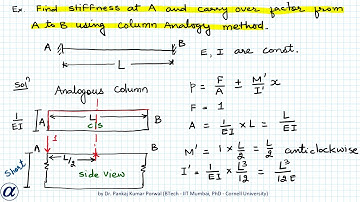 Ex. Find stiffness at A and carry over factor from
A to B using column Analogy method.
A B
L
E, I are const.
Solⁿ
Analogous Column
1/EI
A L B
c/s
1
A L/2 B
side view
Short
P = F/A ± M'/I' x
F = 1
A = 1/EI × L = L/EI
M' = 1 × L/2 = L/2 anticlockwise
I' = 1/EI × L³/12 = L³/12E
α
by Dr. Pankaj Kumar Porwal (BTech - IIT Mumbai, PhD - Cornell University)